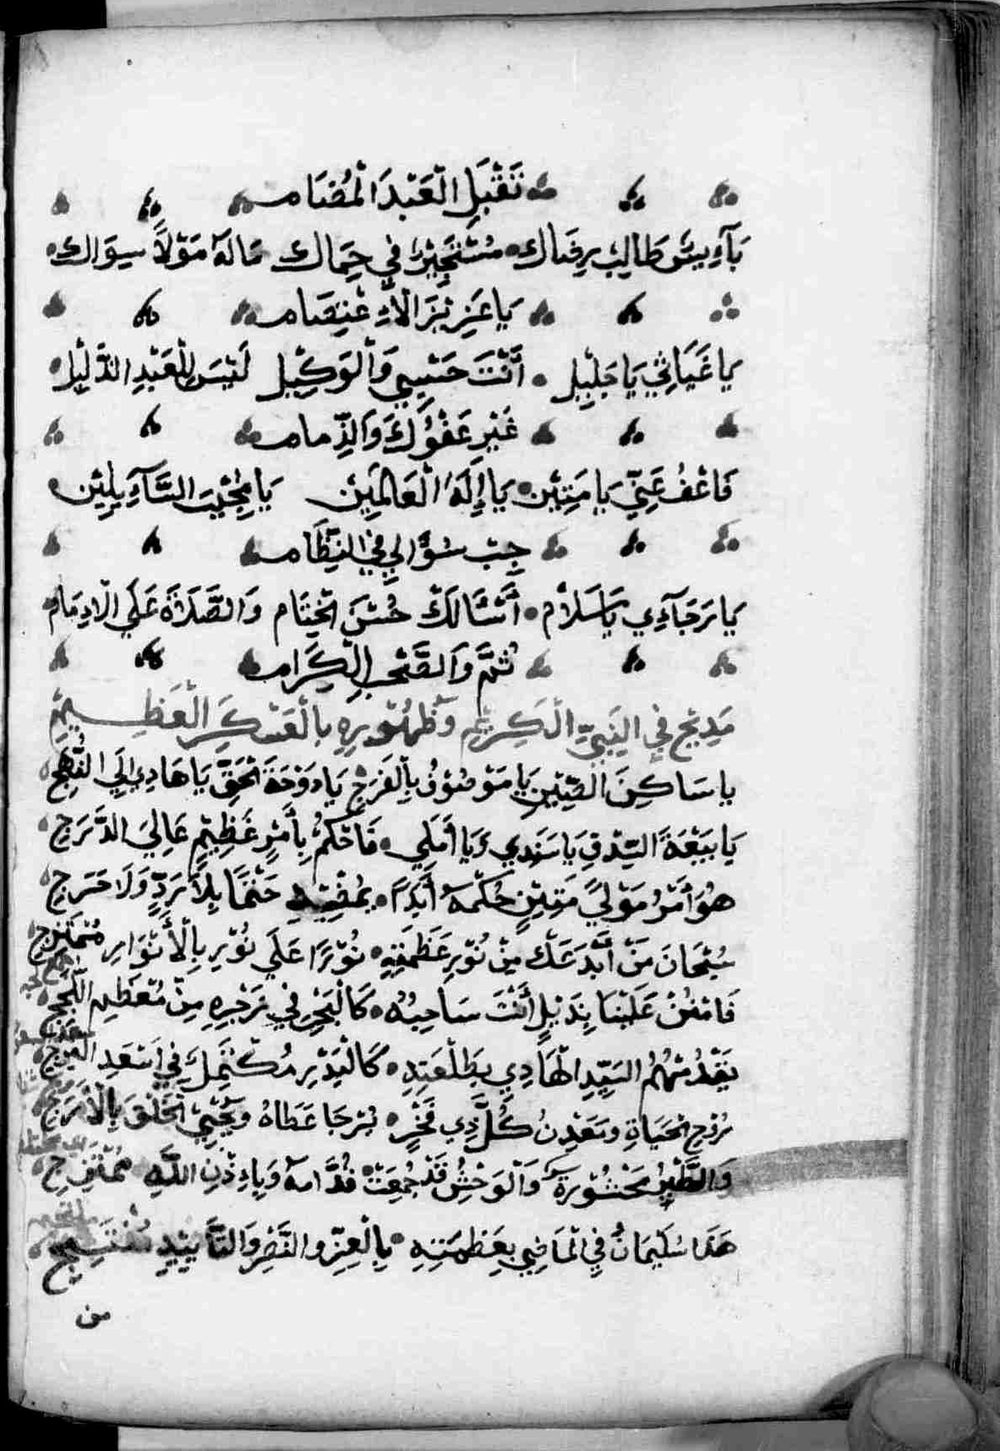 تَقْبَلِ الْعَبْدَ الْمُضَامْ
بَآءِيسٌ طَالِبْ رِضَاكْ مُسْتَجِيْرٌ فِي حِمَاكْ مَالَهُ مَوْلًا سِوَاكْ
يَا عَزِيْزَ الْاِعْتِصَامْ
يَا غَيَاثِي يَا جَلِيْل أَنْتَ حَسْبِيْ وَالْوَكِيْل لَيْسَ لِلْعَبْدِ الذَّلِيْل
غَيْرِ عَفْوُكَ وَالذِّمام
فَاعْفُ عَنِّيْ يَا مَتِيْن يَا إِلَهَ الْعَالَمِيْن يَا مُجِيْبَ السَّآءِيلِيْن
جِبْ سُؤَالِي فِي النِّظَامْ
يَا رَجَآءِي يَا سَلَامْ أَسْئَالَكْ حُسْنَ الْخِتَام وَالصَّلَاةَ عَلَي الْاِمَامْ
ثُمَّ وَالصَّحْبِ الْكِرَامْ
مَدِيْحٌ فِي النَّبِيِّ الْكَرِيْمِ وَظُهُوْرِهِ بِالْعَسْكَرِ الْعَظِيْمِ
يا سَاكِنَ الصِّيْنِ يَا مَوْصُوْفُ بِالْفَرَجْ يَا دَوْحَةَ الْحَقِّ يَا هَادِي اِلَي النَّهِجْ
يَا بَيْعَةَ السِّدْقِ يَا سَنَدِي وَيَا أَمَلِي فَاحْكُمْ بِأَمْرٍ عَظِيْمٍ عَالِيَ الدَّرَجِ
هُوَ أَمْرُ مَوْلَيً مَتِيْنٍ حُكْمَهُ أَبَدًا يُمْضِيْهِ حَتْمًا بِلَا رَدٍّ وَلَا حَرَجِ
سُبْحَانَ مَنْ أَبْدَعَكْ مِنْ نُوْرِ عَظَمَتِهِ نُوْرًا عَلَي نُوْرٍ بِالْأَنْوَارِ مُمْتَزِجِ
فَامْنُنْ عَلَيْنَا بِذَيْلٍ أَنْتَ سَاحِبُهُ كَالْبَحْرِ فِي زَجْرِهِ مِنْ مُعْظَمِ اللُّجَجِ
يَقْدُمُهُمُ السَّيِّدِ الْهَادِي بِطَلْعَتِهِ كَالْبَدْرِ مُكْتَمِلٍ فِي اَسْعَدِ الْبُرُجِ
رُوْحِ الْحَيَاةِ وَمَعْدِنُ كُلِّ ذِي فَخْرٍ يُرْجَا عَطَاهُ وَيُحْيِيْ الْخَلْقَ بِالْأَرَجِ
وَالطَّيْرُ مَحْشُوْرَةً وَالْوَحْشُ قَدْ جُمِعَتْ قُدَّامَهُ وَبِاِذْنِ اللَّهِ
هَذَا سُلَيْمَانُ فِي الْمَاضِي بِعَظَمَتِهِ بِالْعِزِّ وَالنَّصْرِ وَالتَّأْيِيْدِ
من